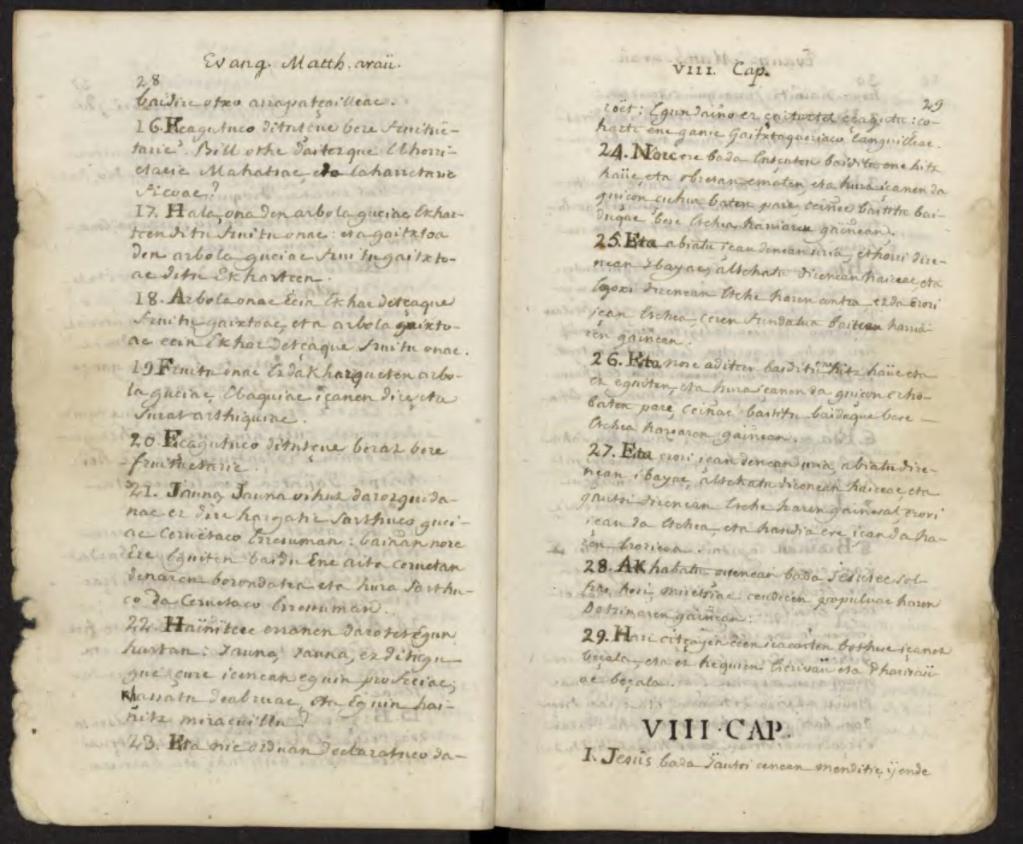 Evang. Matth. araü.
28
baidire otxo arrapatçailleac.
16. Eçagutuco ditutçue bere fruitüe-
taric. Bill othe daitezque Elhorri-
etaric Mahatsac, eta laharretaric
ficoac?
17. Hala, ona den arbola guciac Ekhar-
tcen ditu fruitu onac: eta gaitxtoa
den arbola guciac fruitu gaitxto-
ac ditu Ekhartcen.
18. Arbola onac Ecin Ekhar detçaque
fruitu gaixtoac, eta arbola gaixto-
ac ecin Ekhar detçaque fruitu onac.
19 Fruitu onac Ezdakharzqueten arbo-
la guciac, Ebaquiac içanen dire, eta
Surat arthiquiac.
20. Eçagutuco ditutçue beraz bere
fruituetaric.
21. Jauna, Jauna
nac ez dire hargatic Sarthuco guci-
ac Ceruetaco Erresuman: bainan nore
Ere Eguiten baidu Ene aita ceruetan
denaren borondatea eta hura Sarthu-
co da Ceruetaco Erresuman.
22. Hainitcec erranen darotet Egun
hartan: Jauna, Jauna, ez ditugu
guc çure icenean eguin profeciac,
khassatu deabruac, eta Eguin hai-
nitz miracuillu?
23. Eta nic orduan declaratuco da-
VIII. Cap.
29
roët: Egundaino ez çaituztet eçagutu:
ene ganic Gaitxtaqueriaco Languilleac.
24. Norc ere bada Ençuten baiditu ene hitz
haüc, eta obretan ematen, eta hura içanen da
guiçon çuhur baten pare, ceinac bastitu bai-
duque bere Etchea harriaren gainean.
25. Eta abiatu içan denean uria, ethorri dire-
nean Ibayac, altchatu direnean haiceac, eta
direnean Etche haren contra, ezda Erori
içan Etchea, ceren fundatua baitcen harria-
ren gainean.
26. Eta norc aditcen baiditu ene hitz haüc eta
ez eguiten, eta hura içanen da guiçon erho
baten pare, ceinac bastitu baiduque bere
Etchea hareaaren gainean.
27. Eta erori içan denean uria, abiatu dire-
nean ibayac, altchatu direnean haiceac, eta
direnean Etche haren gainerat, Erori
içan da Etchea, eta handia ere içan da ha-
ren Erorcea.
28. Akhabatu cuenean bada Jesusec sol-
has hori, miretsiac ceudecen populuac haren
Dotrinaren gainean.
29. becala, eta ez hequien Escribaü eta Pharisaü-
ac beçala.
VIII. CAP.
1. Jesüs bada Jautsi cenean menditic, jende